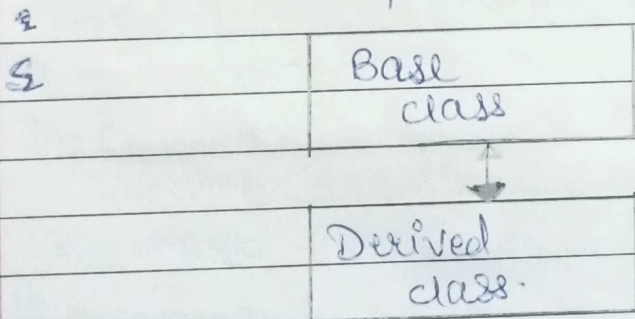 Base
class
Derived
class.